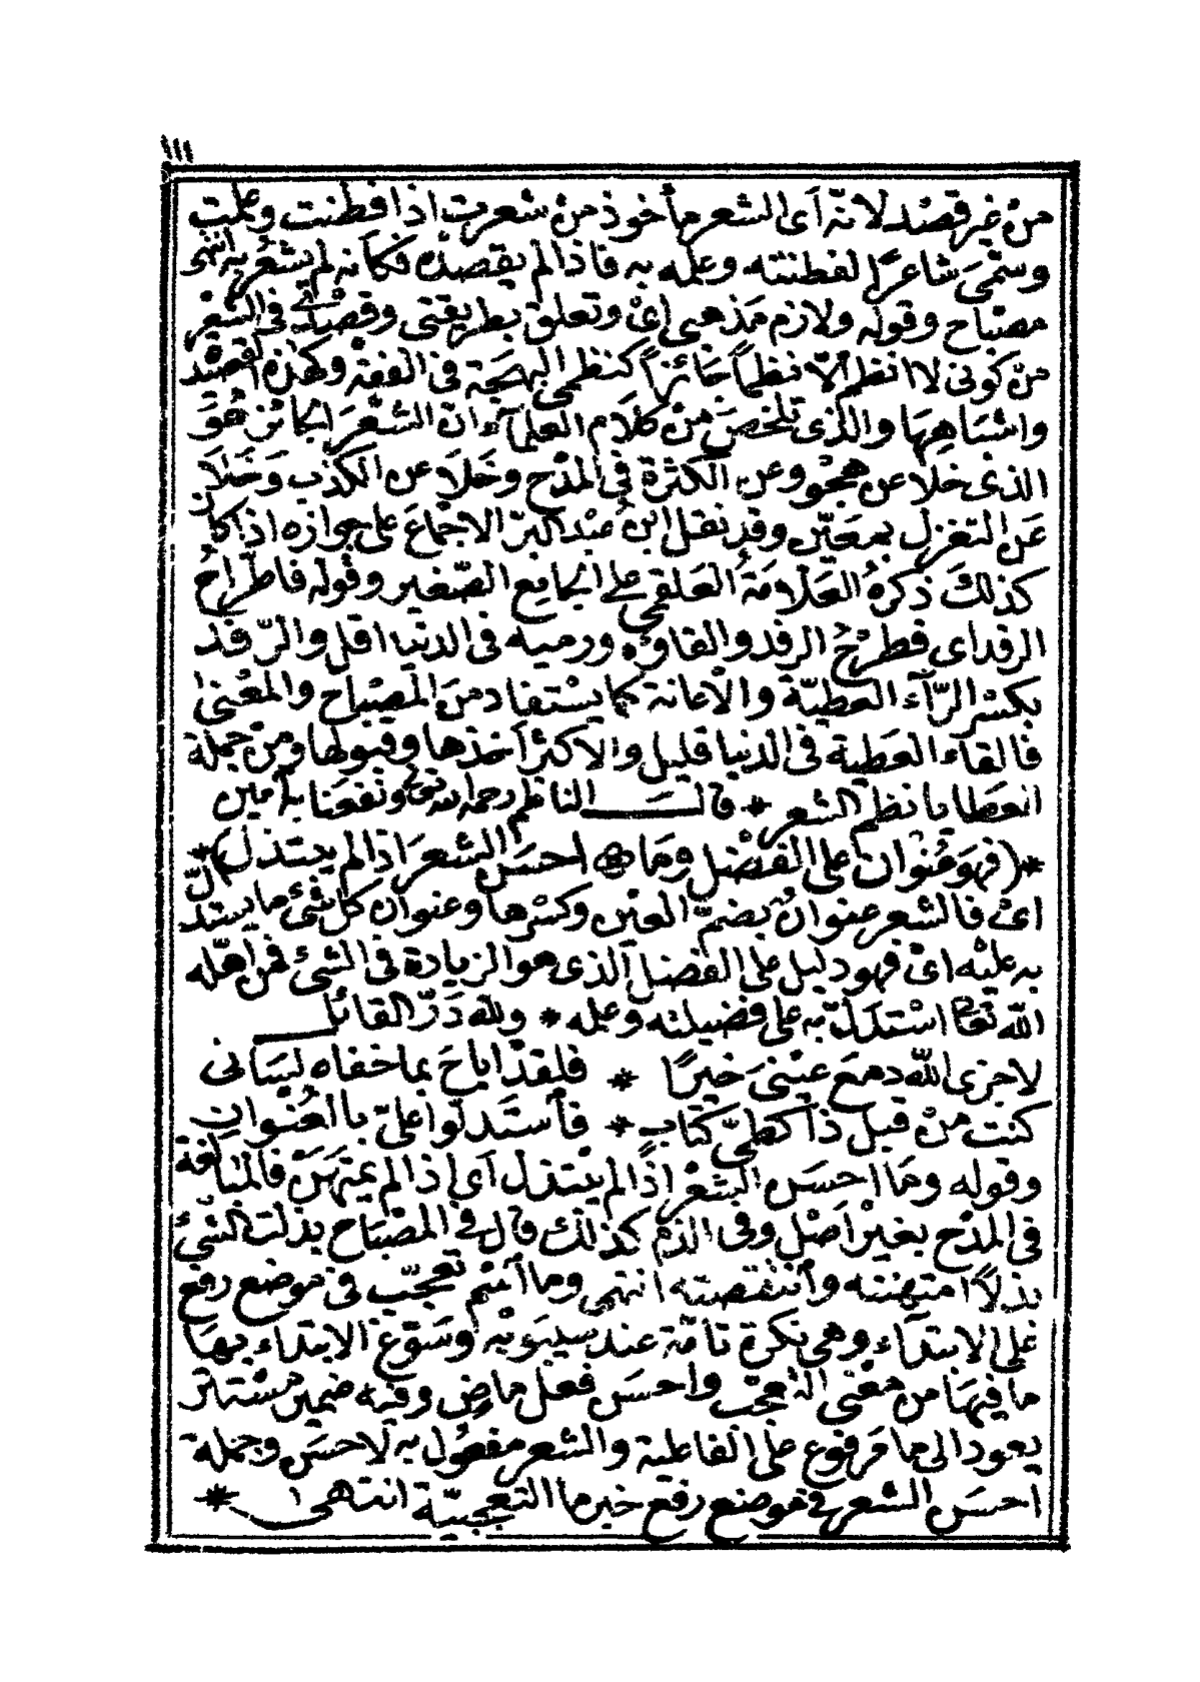 ١١١
من غير قصد لانّه أى الشعر مأخوذ من شعرت اذا فطنت وعلمت
وسمّى شاعرًا لفطنته وعلمه به فاذا لم يقصده فكأنه لم يشعر به انتهى
مصباح وقوله ولازم مذهبى اى وتعلق بطريقتى وقصدى فى الشعر
من كونى لا انظم الّا نظمًا جائزاً كنظمى البهجة فى الفقه ولهذه القصيدة
واشباهها والذى تلخص من كلام العلمآء ان الشعر الجائز هو
الذى خلا عن هجو وعن الكثرة فى المدح وخلا عن الكذب وخلا
عن التغزل بمعيّن وقد نقل ابن عبد البرّ الاجماع على جوازه اذا كان
كذلك ذكره العلّامة العلقمى على الجامع الصّغير وقوله فاطّراح
الرفد اى فطرح الرفد والقاؤه ورميه فى الدنيا اقل والرّفد
بكسر الرّآء العطيّة والاعانة كما يستفاد من المصباح والمعنى
فالقاء العطية فى الدنيا قليل والاكثر أخذها وقبولها ومن جملة
العطايا نظم الشعر * قال الناظم رحمه الله تعالى ونفعنا به آمين
*(فهو عنوان على الفضل وما * احسن الشعر اذا لم يبتذل)*
اى فالشعر عنوان بضمّ العين وكسرها وعنوان كل شئ ما يستدلّ
به عليه اى فهو دليل على الفضل الذى هو الزيادة فى الشئ فمن اهّله
الله تعالى استدلّ به على فضيلته وعلمه * ولله درّ القائل
لا جزى الله دمع عينى خيرًا * فلقد اباح بما خفاه لسانى
كنت من قبل ذا كطىّ كتاب * فأستدلّوا علىّ بالعنوان
وقوله وما احسن الشعر اذا لم يبتذل أى اذا لم يمتهن فالمنافة
فى المدح بغير اصل وفى الذم كذلك قال فى المصباح بذلت الشئ
بذلًا امتهنته وأنتقصته انتهى وما اسم تعجّب فى موضع رفع
على الابتدآء وهى نكرة تامّة عند سيبويه وسوّغ الابتداء بها
ما فيها من معنى التعجّب واحسن فعل ماضٍ وفيه ضمير مستتر
يعود الى ما مرفوع على الفاعلية والشعر مفعول به لاحسن وجملة
احسن الشعر فى موضع رفع خبر ما التعجبيّة انتهى *